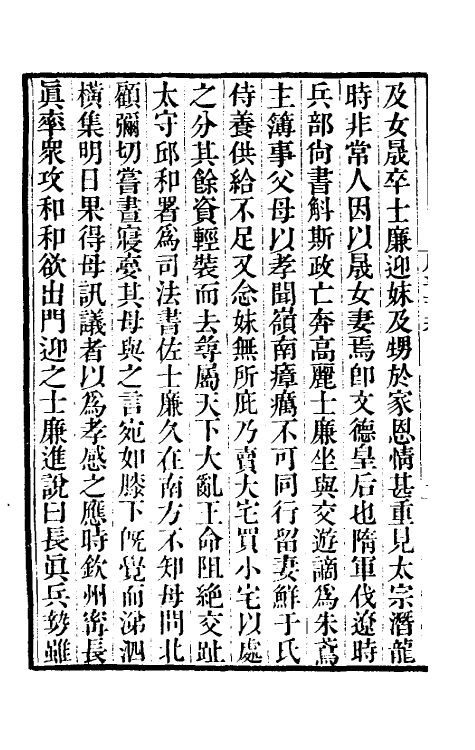 及女晟卒士廉迎妹及甥於家恩情甚重見太宗潛龍
時非常人因以晟女妻焉卽文德皇后也隋軍伐遼時
兵部尙書斛斯政亡奔高麗士廉坐與交遊謫爲朱鳶
主簿事父母以孝聞嶺南瘴癘不可同行留妻鮮于氏
侍養供給不足又念妹無所庇乃賣大宅買小宅以處
之分其餘資輕裝而去尋屬天下大亂王命阻絕交趾
太守邱和署爲司法書佐士廉久在南方不知母問北
顧彌切嘗晝寢夢其母與之言宛如膝下旣覺而涕泗
橫集明日果得母訊議者以爲孝感之應時欽州甯長
眞率衆攻和和欲出門迎之士廉進說曰長眞兵勢雖